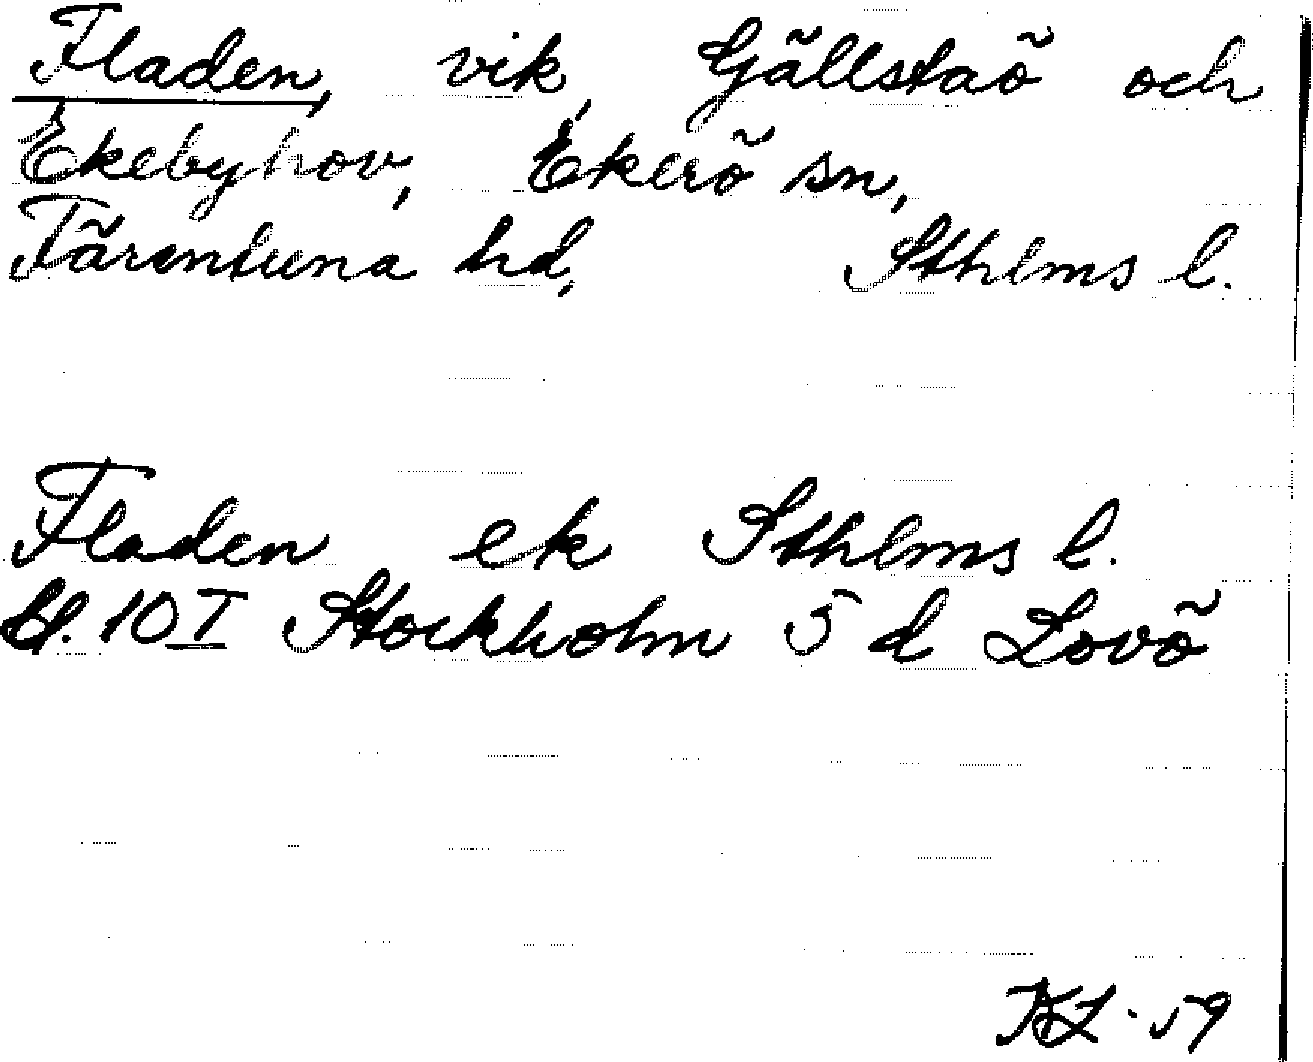 Fladen, vik, Gällstaö och
Ekebyhov, Ekerö sn,
Färentuna hd, Sthlms l.
Fladen ek Sthlms l.
bl. 10 I Stockholm 5 d Lovö
KL -59